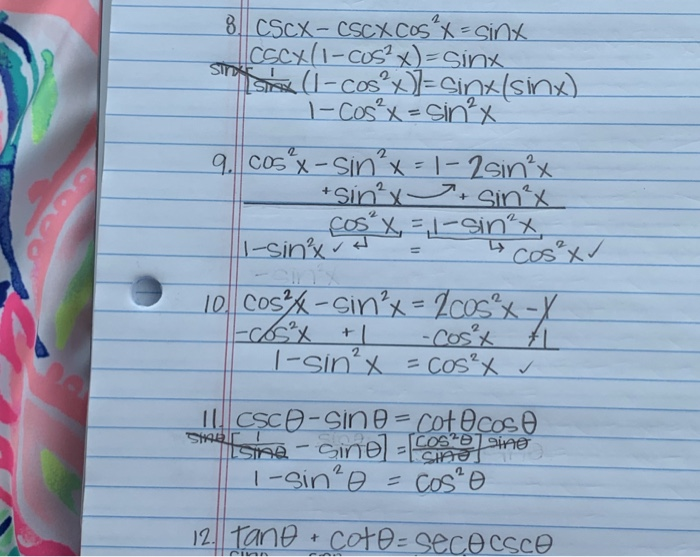 8. cscx - cscxcos²x = sinx
cscx(1-cos²x) = sinx
sinx[1/sinx (1-cos²x)] = sinx(sinx)
1-cos²x = sin²x
9. cos²x - sin²x = 1 - 2sin²x
+sin²x + sin²x
cos²x = 1-sin²x
1-sin²x ✓ = cos²x ✓
10. cos²x - sin²x = 2cos²x - 1
-cos²x +1 -cos²x +1
1-sin²x = cos²x ✓
11. cscθ - sinθ = cotθcosθ
sinθ[1/sinθ - sinθ] = [cos²θ/sinθ] sinθ
1-sin²θ = cos²θ
12. tanθ + cotθ = secθcscθ